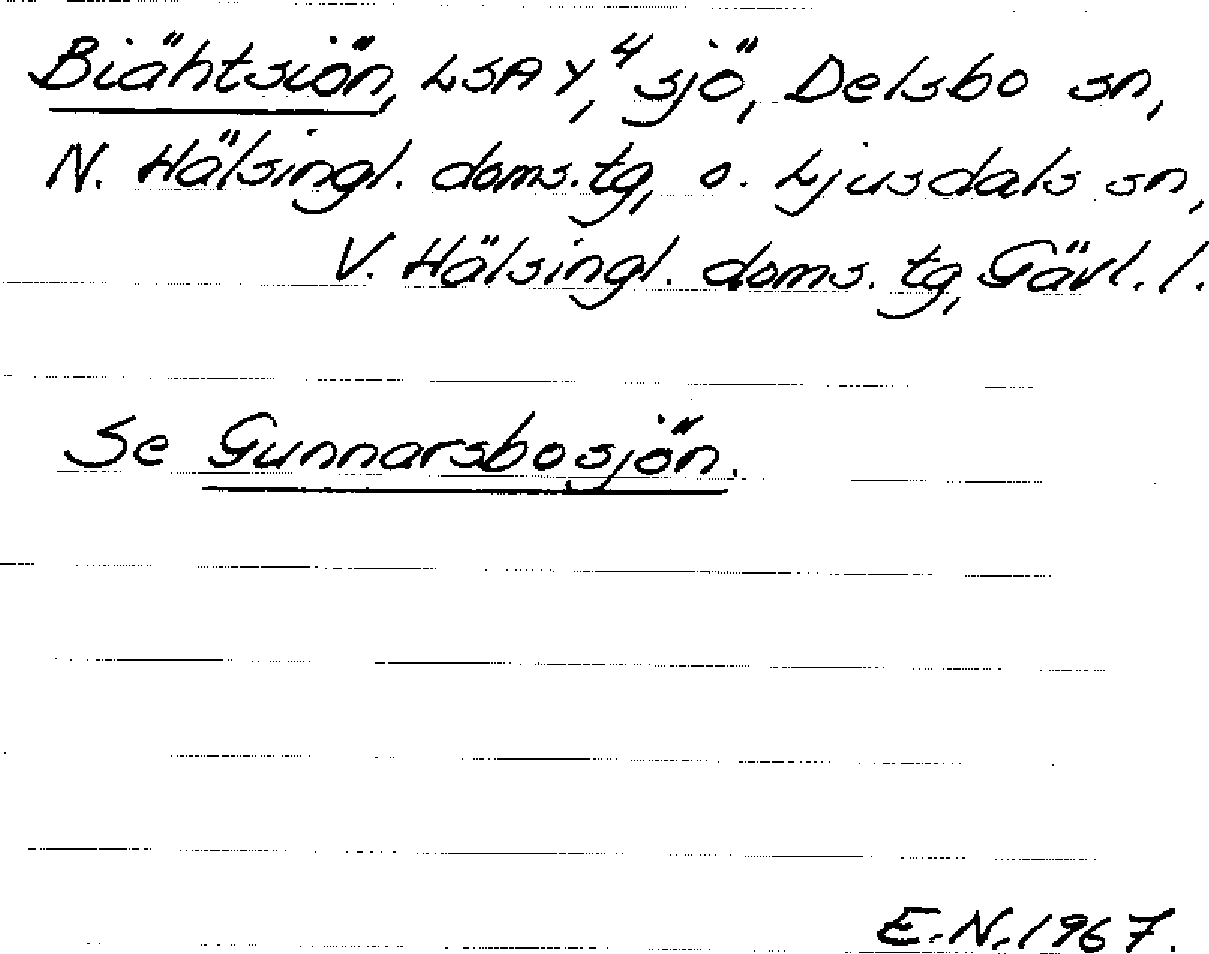 Biähtsiön, LSA Y,⁴ sjö, Delsbo sn,
N. Hälsingl. doms.tg, o. Ljusdals sn,
V. Hälsingl. doms. tg, Gävl. l.
Se Gunnarsbosjön.
E.N. 1967.